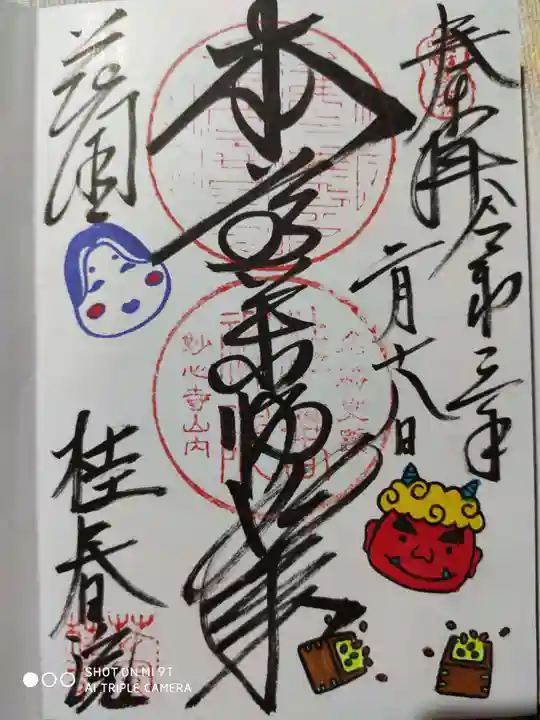 奉拝 令和三年
二月十八日
本尊薬師如来
花園
桂春院
名勝史蹟
妙心寺山内
SHOT ON MI 9T
AI TRIPLE CAMERA